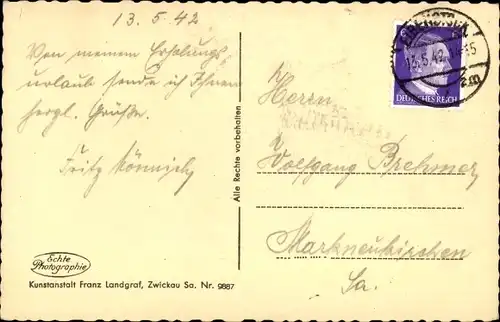 13.5.42
Von meinem Erholungs-
urlaub sende ich Ihnen
herzl. Grüße.
Fritz
Echte
Photographie
Kunstanstalt Franz Landgraf, Zwickau Sa. Nr. 9887
Alle Rechte vorbehalten
DEUTSCHES REICH
Herrn
Wolfgang Brehmer
Markneukirchen
Sa.